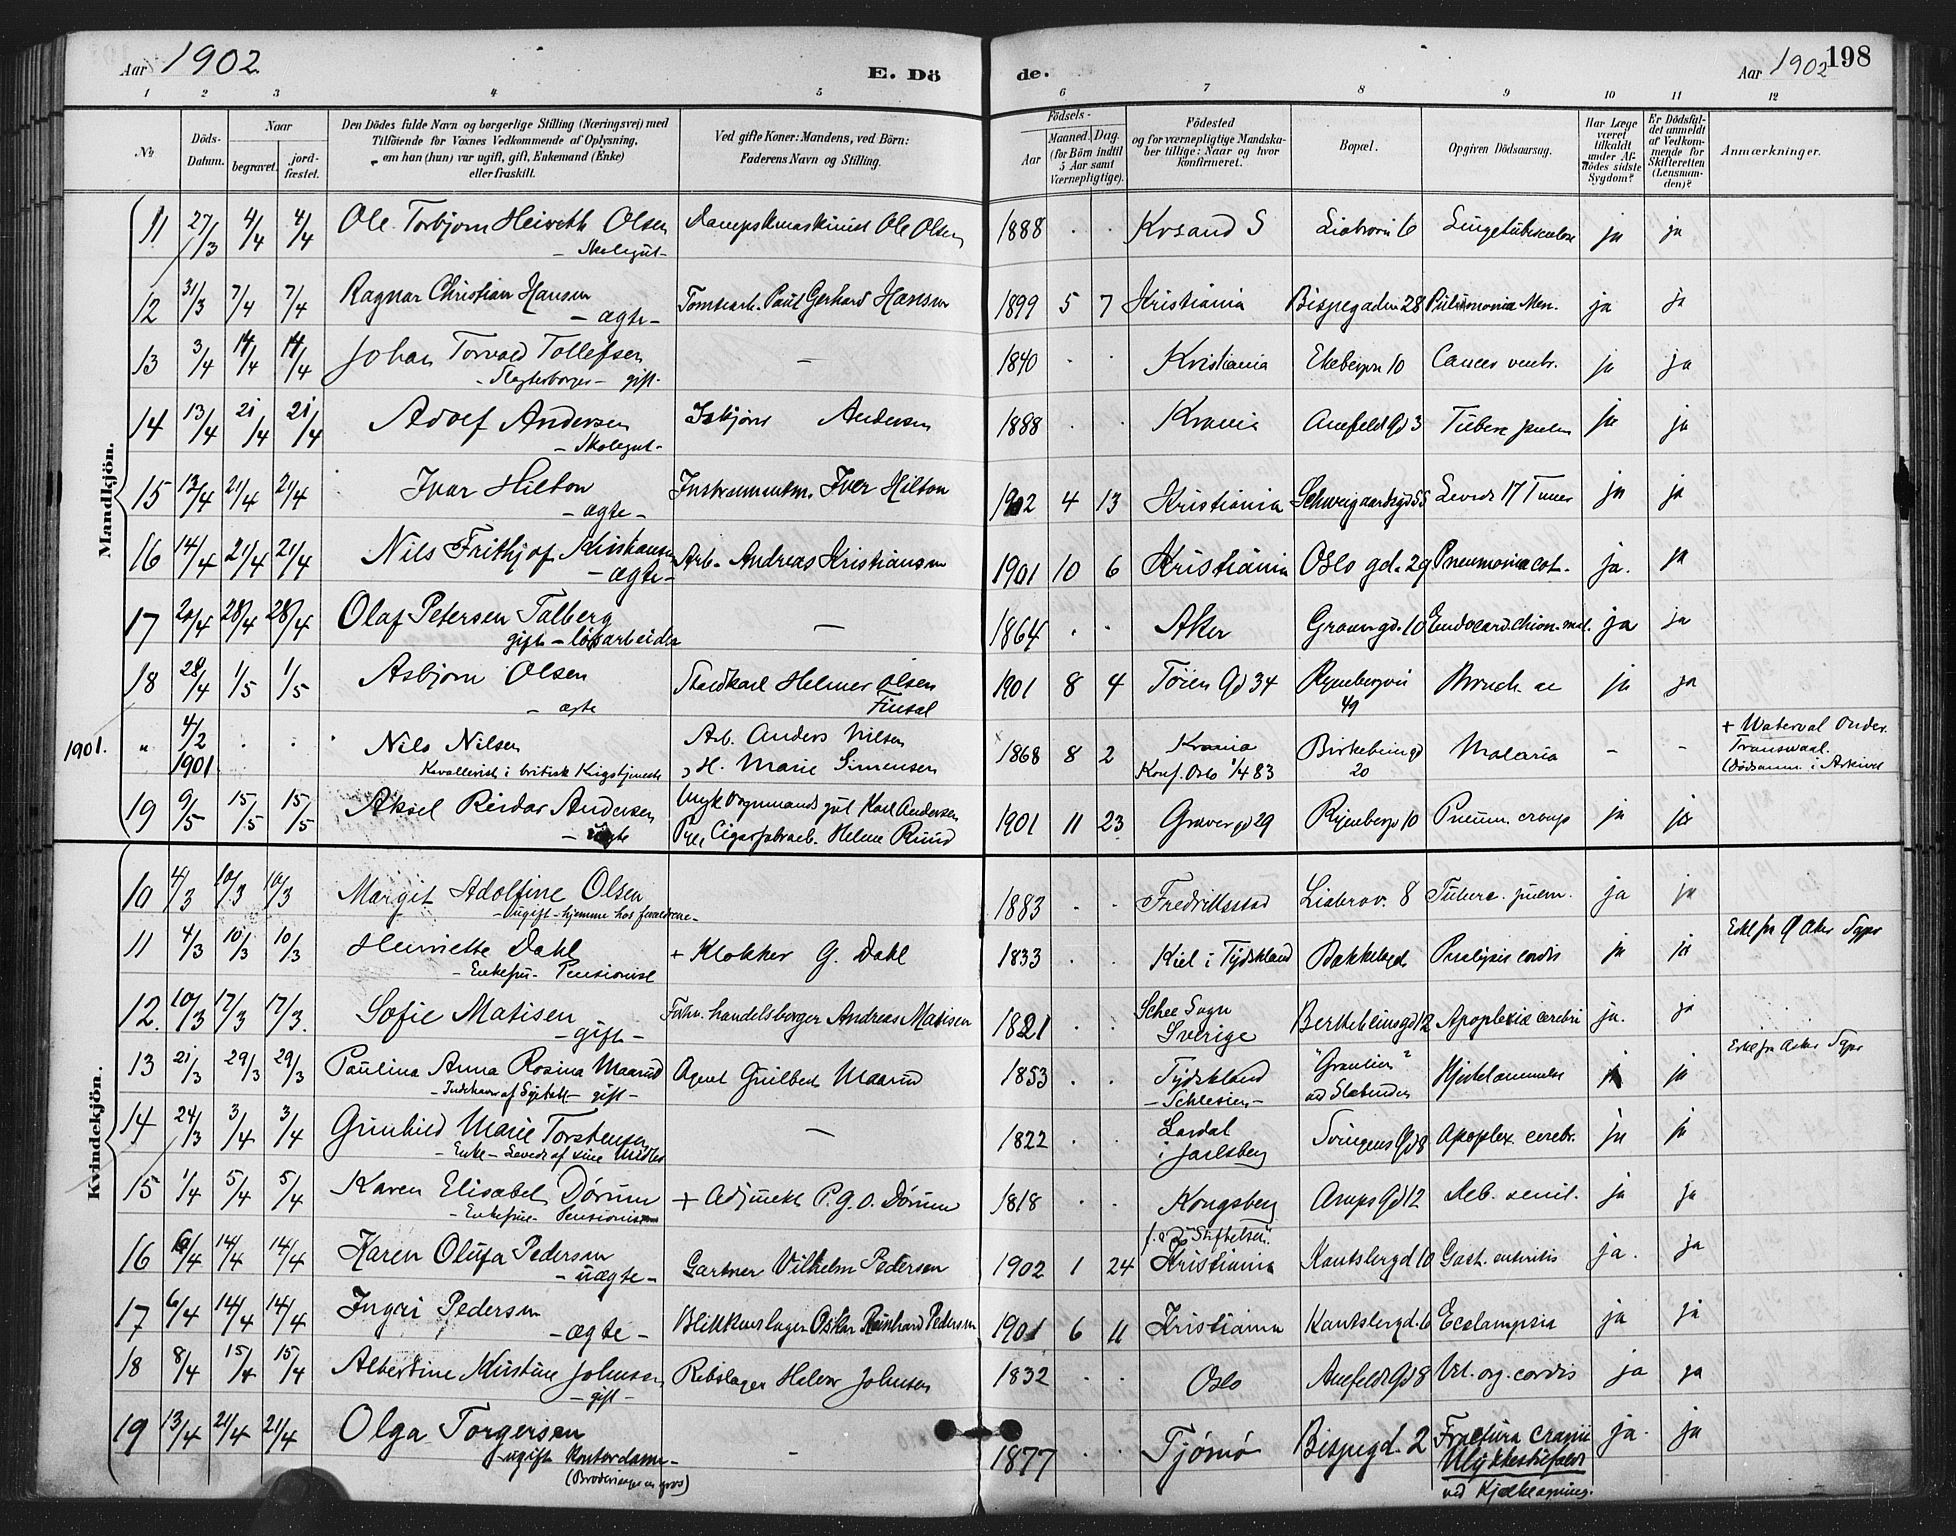 Aar 1902 E. Dö de. Aar 1902 198
1 2 3 4 5 6 7 8 9 10 11 12
No Döds-Datum. Naar begravet. jordfæstet. Den Dödes fulde Navn og borgerlige Stilling (Næringsvej) med Tilföiende for Voxnes Vedkommende af Oplysning, om han (hun) var ugift, gift, Enkemand (Enke) eller fraskilt. Ved gifte Koner: Mandens, ved Börn: Faderens Navn og Stilling. Födsels- Aar Maaned. Dag. (for Börn indtil 5 Aar samt Værnepligtige). Födested og for værnepligtige Mandskaber tillige: Naar og hvor konfirmeret. Bopæl. Opgiven Dödsaarsag. Har Læge været tilkaldt under Afdödes sidste Sygdom? Er Dödsfaldet anmeldt af Vedkommende for Skifteretten (Lensmanden)? Anmærkninger.
Mandkjön.
11 27/3 4/4 4/4 Ole Torbjørn Heiveth Olsen Dampskmaskinist Ole Olsen 1888 . . Krsand S Liabrovn 6 Lungetuberculose ja ja
- Skolegut -
12 31/3 7/4 7/4 Ragnar Christian Hansen Tomtearb. Paul Gerhard Hansen 1899 5 7 Kristiania Bispegaden 28 Pulmonia Men. ja ja
- ægte -
13 3/4 14/4 14/4 Johan Torvald Tollefsen — 1840 . . Kristiania Ekebergvn 10 Cancer ventr. ja ja
- Slagterborger - gift -
14 13/4 21/4 21/4 Adolf Andersen Iskjører Andersen 1888 . . Krania 3 Tuberc pulm ja ja
- Skolegut -
15 13/4 21/4 21/4 Ivar Hilton Instrumentm. Iver Hilton 1902 4 13 Kristiania Schweigaardsgd 55 Levede 17 Timer ja ja
- ægte -
16 14/4 21/4 21/4 Nils Frithjof Kristiansen Arb. Andreas Kristiansen 1901 10 6 Kristiania Oslo gd. 29 Pneumonia cat. ja. ja
- ægte -
17 20/4 28/4 28/4 Olaf Petersen Talberg — 1864 . . Aker Grønnegd. 10 Endocard. chron. mal. ja ja
gift - løsarbeider
18 28/4 1/5 1/5 Asbjørn Olsen Staldkarl Helmer Olsen 1901 8 4 Tøien Gd 34 Ryenbergvei 49 Bronch. ac ja ja
- ægte Finsal
1901. " 4/2 1901 . . Nils Nilsen Arb. Anders Nilsen 1868 8 2 Krania Birkebeinergd 20 Malaria - - + Waterval Onder
Kavallerist i britisk Krigstjeneste H. Marie Simensen Konf. Oslo 1/4 83 Transvaal. (Dødsanm. i Arkivet
19 9/5 15/5 15/5 Aksel Reidar Andersen Ungk Vognmandsgut Karl Andersen 1901 11 23 Grøvergd 29 Ryenbergv 10 Pneum. croup ja ja
- uægte Pige, Cigarfabraeb. Helene Ruud
Kvindekjön.
10 4/3 10/3 10/3 Margit Adolfine Olsen 1883 . . Fredrikstad Liabrov. 8 Tuberc. pulm. ja ja
- Ugift - hjemme hos forældrene -
11 4/3 10/3 10/3 Henriette Dahl + Klokker G. Dahl 1833 . . Kiel i Tydskland Bækkelagd Paralysis cordis ja ja Erkl fra Ø Aker Sgpr
- Enkefru - Pensionist
12. 10/3 17/3 17/3. Sofie Matisen Forhv. handelsborger Andreas Matisen 1821 . . Schee Sogn Sverige Berkebeinsgd 12 Apoplexia cerebri ja. ja
- gift -
13 21/3 29/3 29/3 Paulina Anna Rosina Maarud Agent Guilbert Maarud 1853 . . Tydskland - Schlesien - "Granlien" ved Slabenden Hjertelammelse ja ja Erkl fra Aker Sgpr
- Indehaver af - gift -
14 24/3 3/4 3/4 Gunhild Marie Torstensen — 1822 . . Lardal i Jarlsberg Svingens Gd 8 Apoplex cerebr. ja ja
- Enke - Levede af sine Midler
15 1/4 5/4 5/4 Karen Elisabet Dørum + Adjunkt P. G. O. Dørum 1818 . Kongsberg Arups Gd 12 Deb. senil. ja ja
- Enkefrue - Pensionist
16 6/4 14/4 14/4 Karen Olufa Pedersen Gartner Vilhelm Pedersen 1902 1 24 f. a. d. "Stiftelsen" Kristiania Kantslergd 10 Gast. enteritis ja. ja
- uægte -
17 6/4 14/4 14/4 Ingri Pedersen Blikkenslager Oskar Reinhard Pedersen 1901 6 11 Kristiania Kantslergd. 6 Eclampsia ja ja
- ægte -
18 8/4 15/4 15/4 Albertine Kristine Johnsen Rebslager Helmer Johnsen 1832 . . Oslo 8 Vit. org. cordis ja ja
- gift -
19 13/4 21/4 21/4 Olga Torgersen - 1877 . . Tjømø Bispegd. 2 Fractura cranii ja. ja
ugift Kontordame - Ulykkestilfælde
(Broderiage en gros) ved Kjælkeagning.